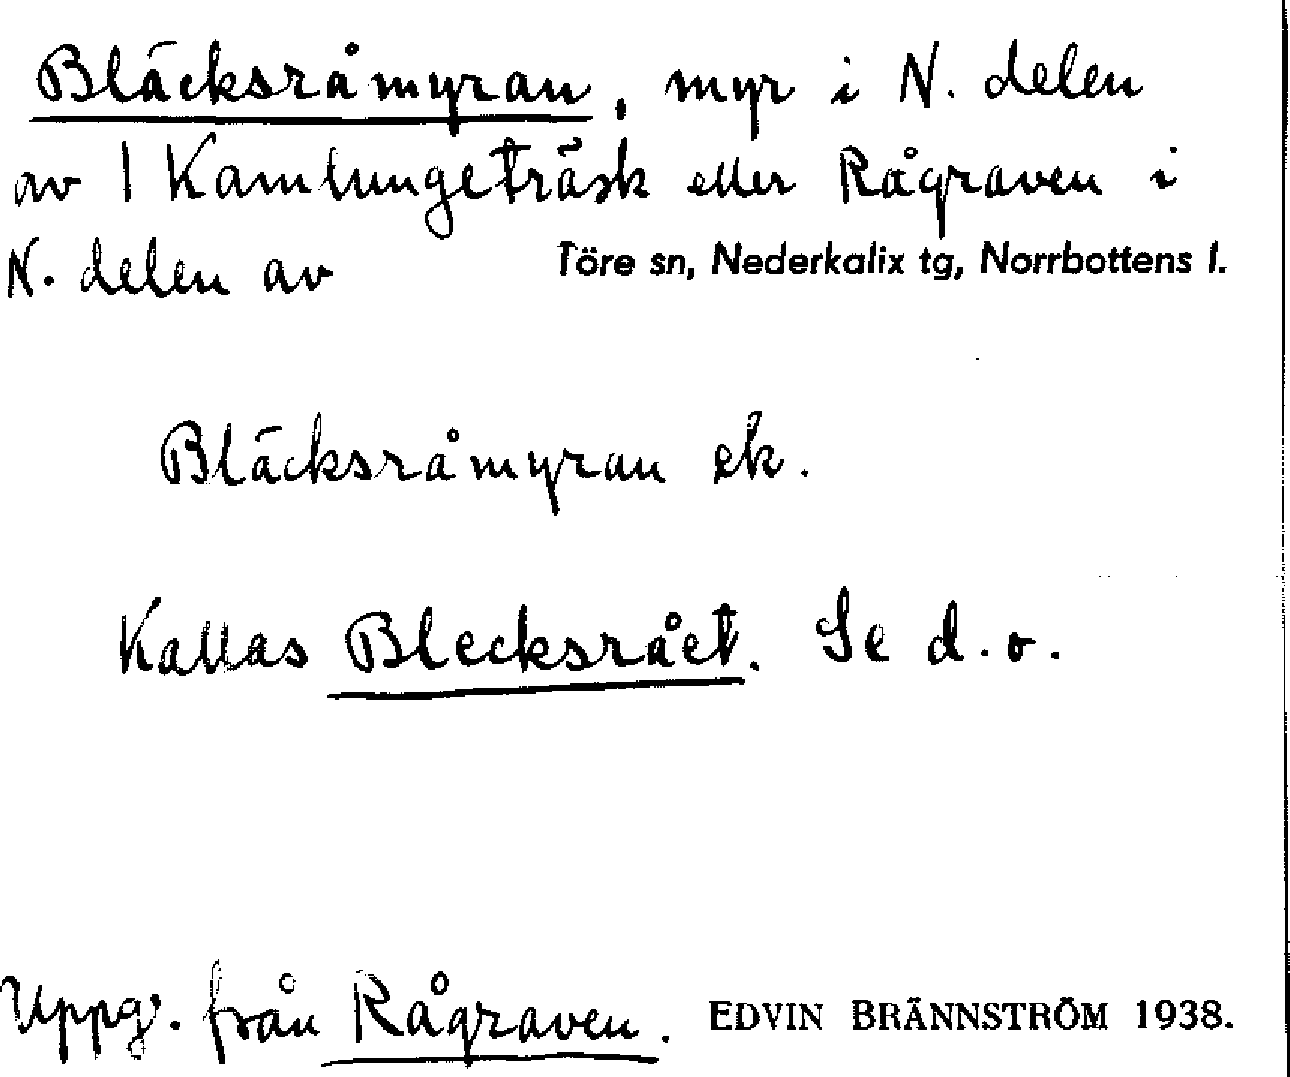 Bläcksråmyran, myr i N. delen
av 1 Kamlungeträsk eller Rågraven i
N. delen av Töre sn, Nederkalix tg, Norrbottens l.
Bläcksråmyran ek.
Kallas Blecksrået. Se d.o.
Uppg. från Rågraven. EDVIN BRÄNNSTRÖM 1938.